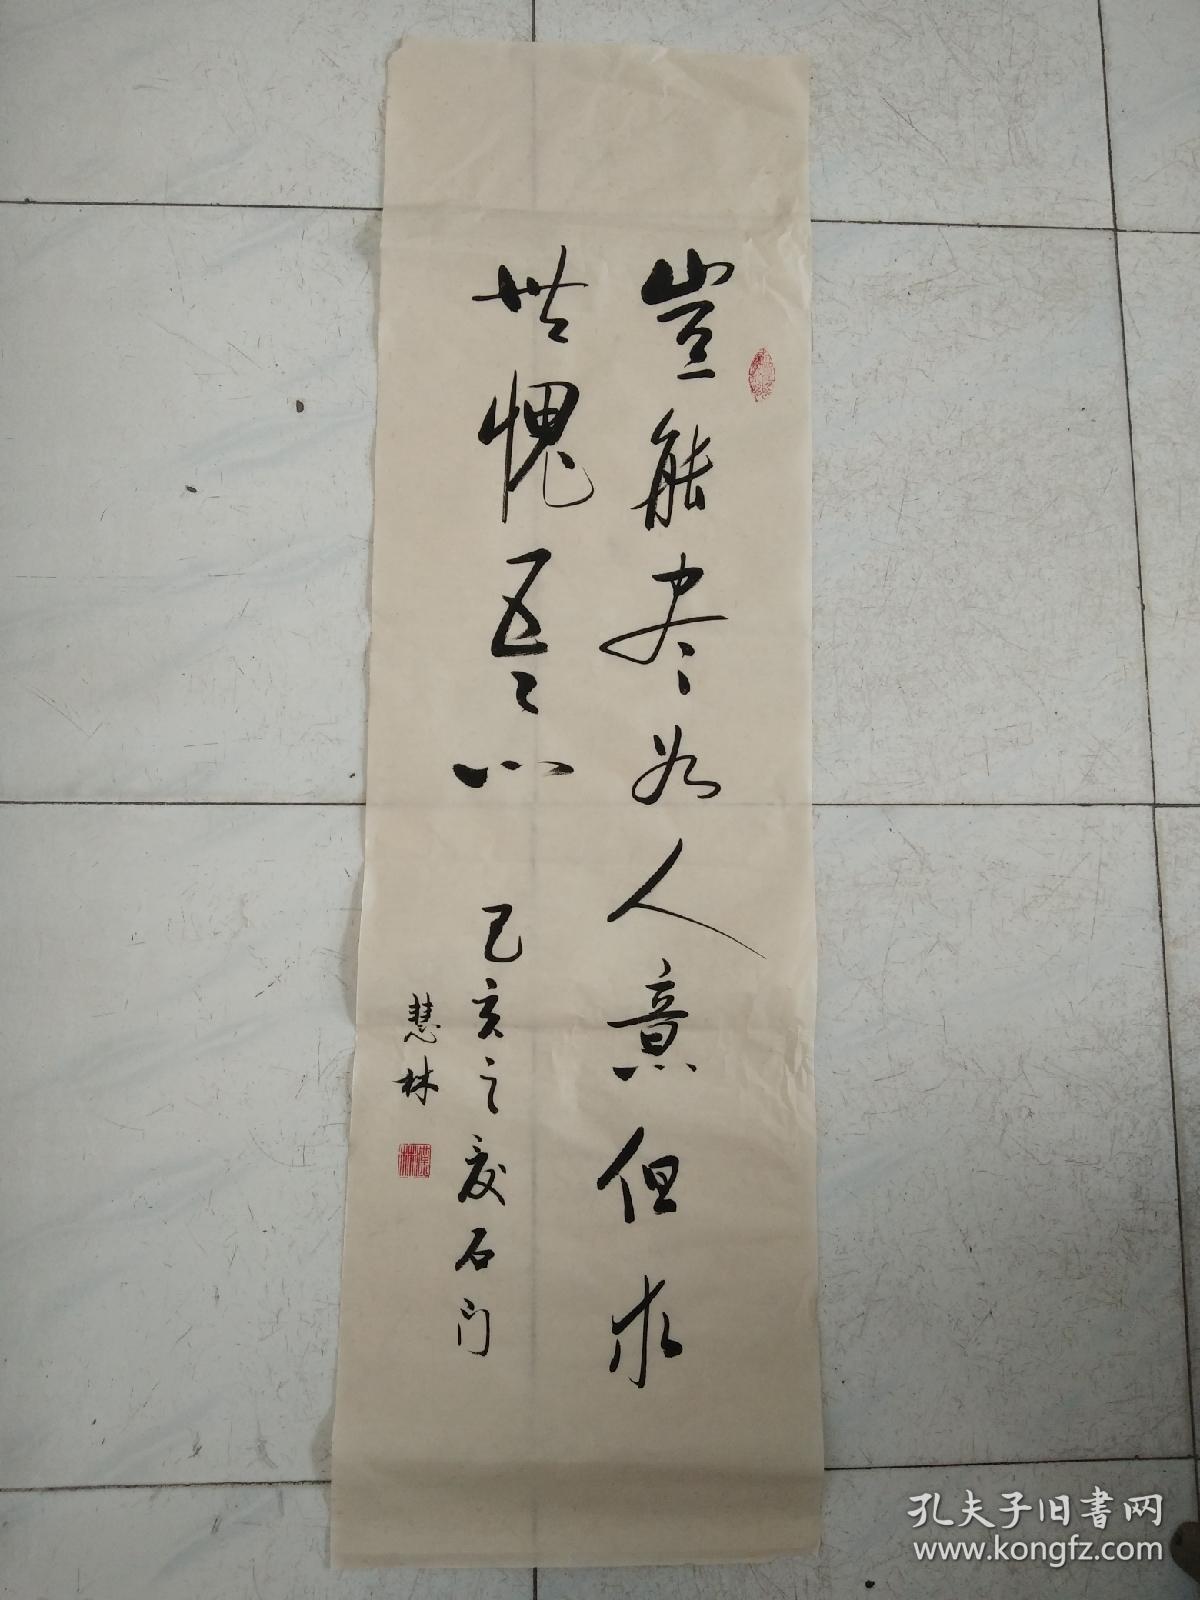 岂能尽如人意但求
無愧吾心
己亥之夏石门
慧林
孔夫子旧书网
www.kongfz.com